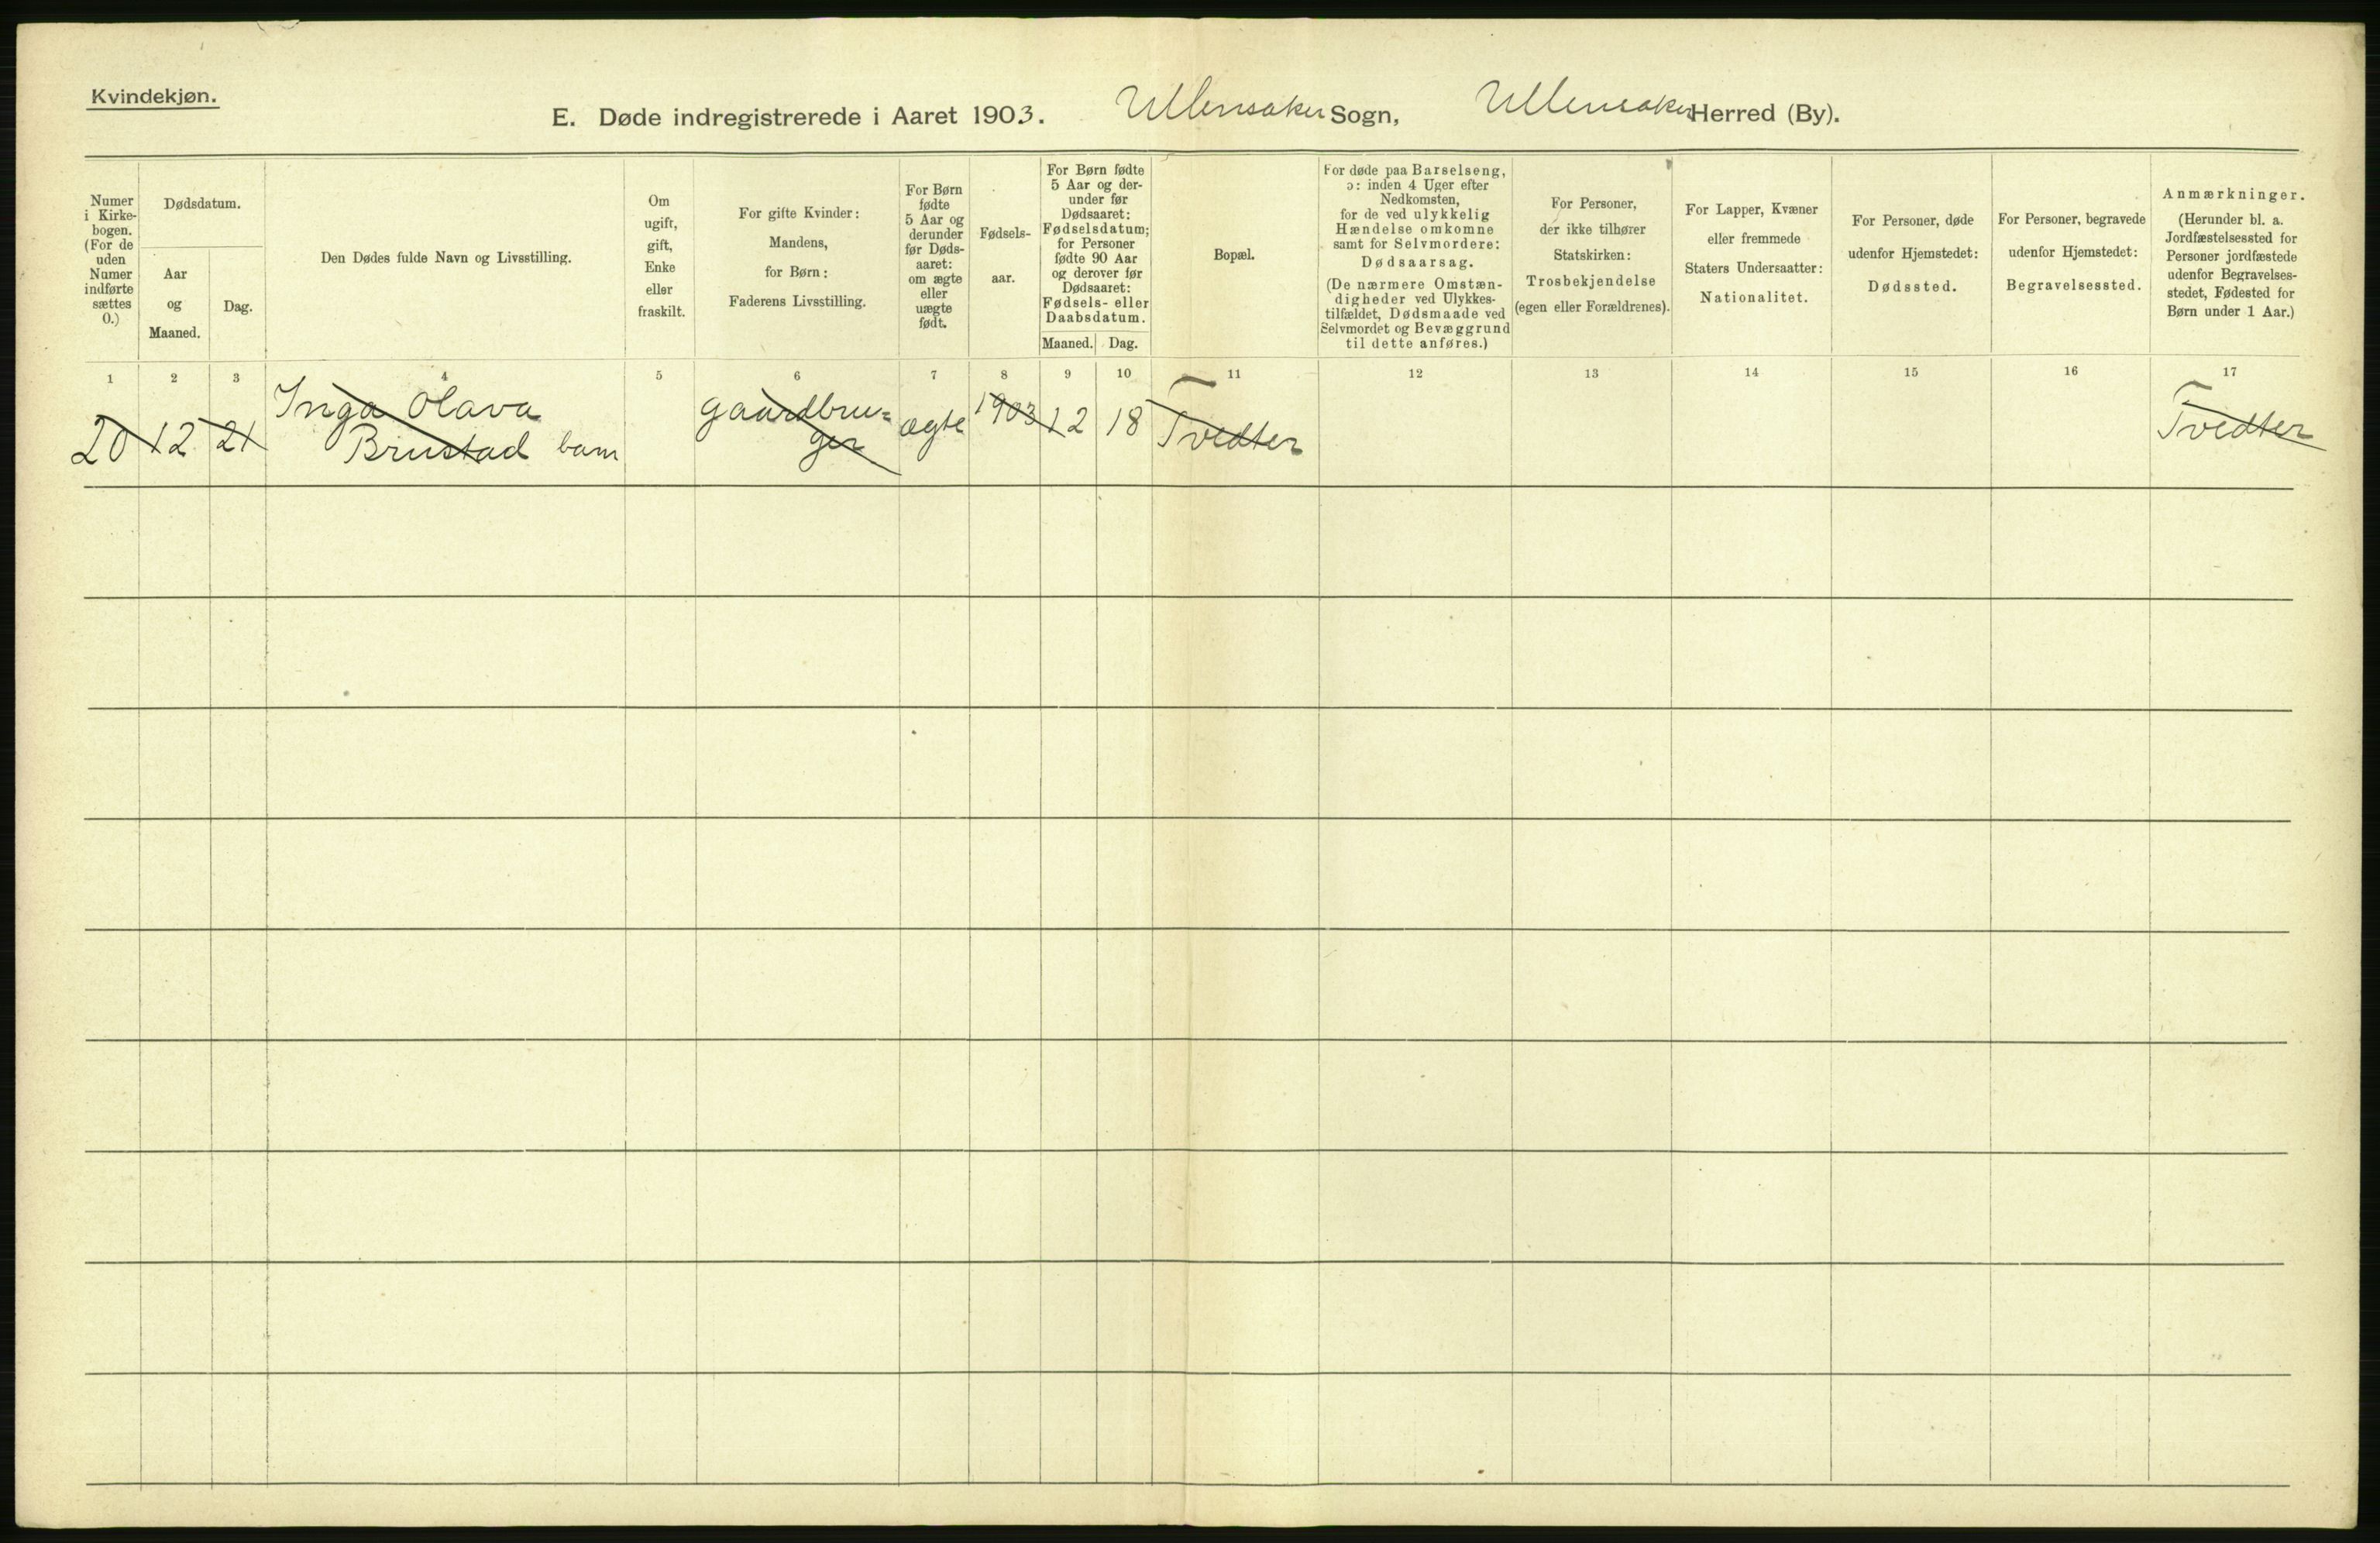 Kvindekjøn.
E. Døde indregistrerede i Aaret 1903. Ullensaker Sogn, Ullensaker Herred (By).
Numer
i Kirke-
bogen.
(For de
uden
Numer
indførte
sættes
0.)
Dødsdatum.
Aar
og
Maaned.
Dag.
Den Dødes fulde Navn og Livsstilling.
Om
ugift,
gift,
Enke
eller
fraskilt.
For gifte Kvinder:
Mandens,
for Børn:
Faderens Livsstilling.
For Børn
fødte
5 Aar og
derunder
før Døds-
aaret:
om ægte
eller
uægte
født.
Fødsels-
aar.
For Børn fødte
5 Aar og der-
under før
Dødsaaret:
Fødselsdatum;
for Personer
fødte 90 Aar
og derover før
Dødsaaret:
Fødsels- eller
Daabsdatum.
Maaned.
Dag.
Bopæl.
For døde paa Barselseng,
ɔ: inden 4 Uger efter
Nedkomsten,
for de ved ulykkelig
Hændelse omkomne
samt for Selvmordere:
Dødsaarsag.
(De nærmere Omstæn-
digheder ved Ulykkes-
tilfældet, Dødsmaade ved
Selvmordet og Bevæggrund
til dette anføres.)
For Personer,
der ikke tilhører
Statskirken:
Trosbekjendelse
(egen eller Forældrenes).
For Lapper, Kvæner
eller fremmede
Staters Undersaatter:
Nationalitet.
For Personer, døde
udenfor Hjemstedet:
Dødssted.
For Personer, begravede
udenfor Hjemstedet:
Begravelsessted.
Anmærkninger.
(Herunder bl. a.
Jordfæstelsessted for
Personer jordfæstede
udenfor Begravelses-
stedet, Fødested for
Børn under 1 Aar.)
1 2 3 4 5 6 7 8 9 10 11 12 13 14 15 16 17
20 12 21 Inga Olava
Brustad barn
gaardbru=
ger
ægte 1903 12 18 Tvedter Tvedter